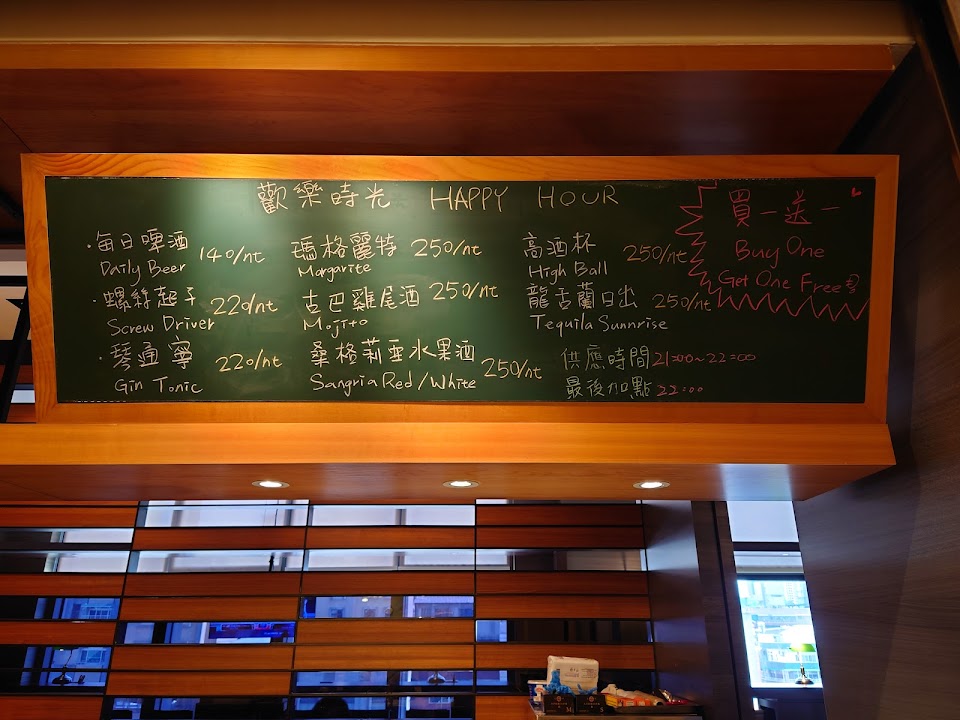 歡樂時光 HAPPY HOUR
·每日啤酒 140/nt
Daily Beer
·螺絲起子 220/nt
Screw Driver
·琴通寧 220/nt
Gin Tonic
瑪格麗特 250/nt
Margarite
古巴雞尾酒 250/nt
Mojito
桑格莉亞水果酒 250/nt
Sangria Red/White
高酒杯 250/nt
High Ball
龍舌蘭日出 250/nt
Tequila Sunnrise
供應時間 21:00~22:00
最後加點 22:00
買一送一
Buy One
Get One Free